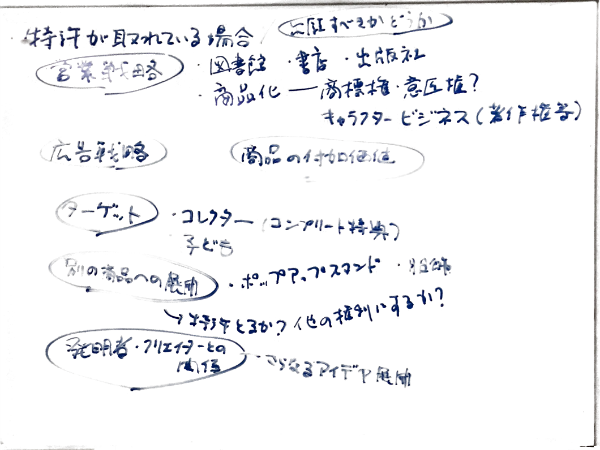 ・特許が取れている場合 公証すべきかどうか
営業戦略 ・図書館 ・書店 ・出版社
・商品化 ― 商標権・意匠権?
キャラクタービジネス(著作権等)
広告戦略 商品の付加価値
ターゲット ・コレクター(コンプリート特典)
子ども
別の商品への展開 ・ポップアップスタンド
→特許とるか?他の権利にするか?
発明者・クリエイターとの
関係 ・さらなるアイデア展開